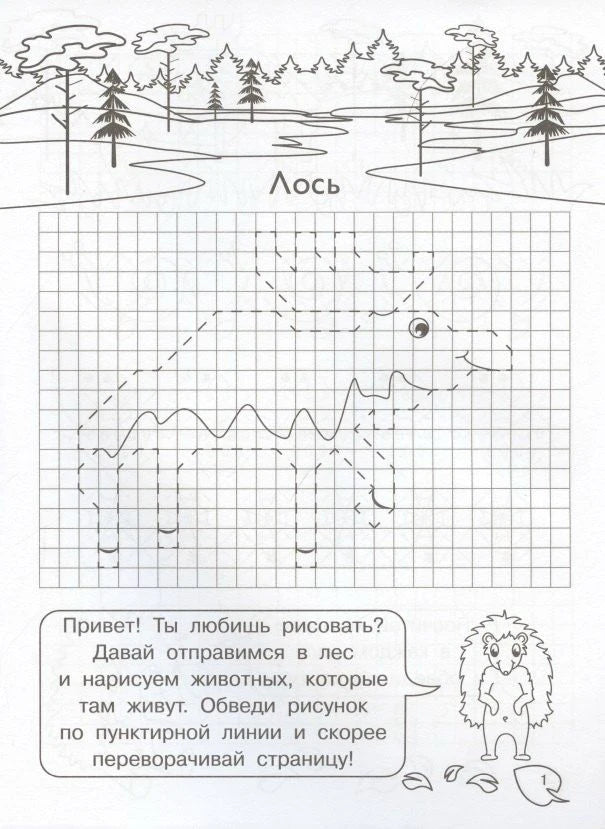 Лось
Привет! Ты любишь рисовать?
Давай отправимся в лес
и нарисуем животных, которые
там живут. Обведи рисунок
по пунктирной линии и скорее
переворачивай страницу!
1